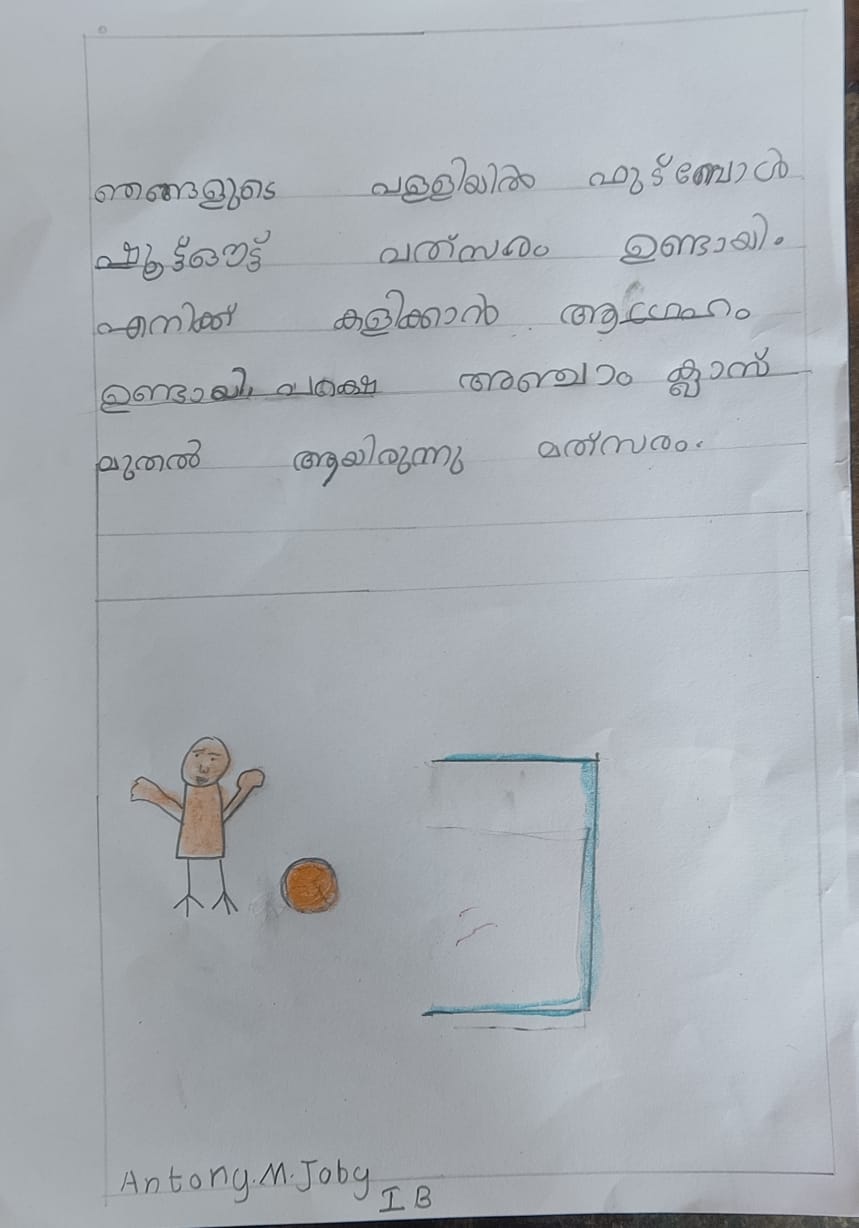 ഞങ്ങളുടെ പള്ളിയിൽ ഫുട്ബോൾ
ഷൂട്ട്ഔട്ട് മത്സരം ഉണ്ടായി.
എനിക്ക് കളിക്കാൻ ആഗ്രഹം
ഉണ്ടായി, പക്ഷെ അഞ്ചാം ക്ലാസ്
മുതൽ ആയിരുന്നു മത്സരം.
Antony.M.Joby
I B